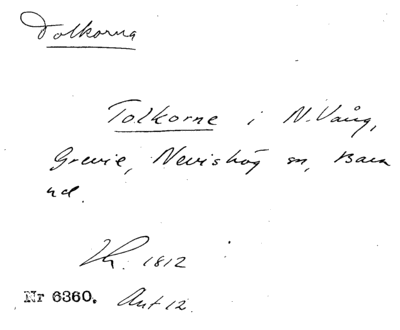 Tolkorna
Tolkorne i N. Vång,
Grevie, Nevishög sn, Bara
hd.
1812
Nr 6360. Ant 12.